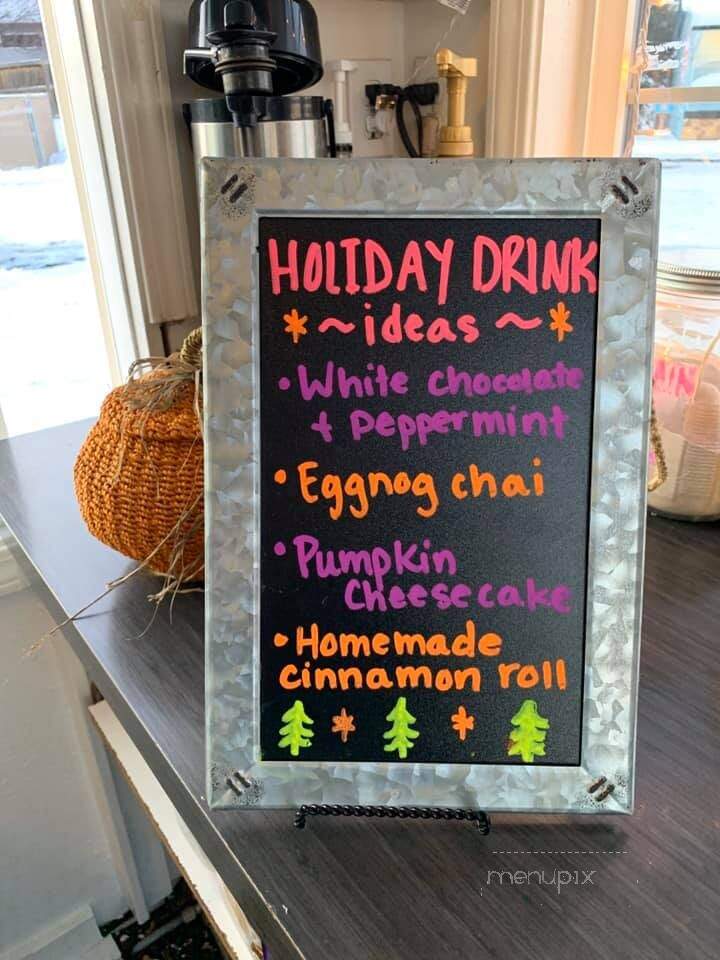 HOLIDAY DRINK
~ideas~
• White chocolate
+ peppermint
• Eggnog chai
• Pumpkin
Cheesecake
• Homemade
cinnamon roll
menupix